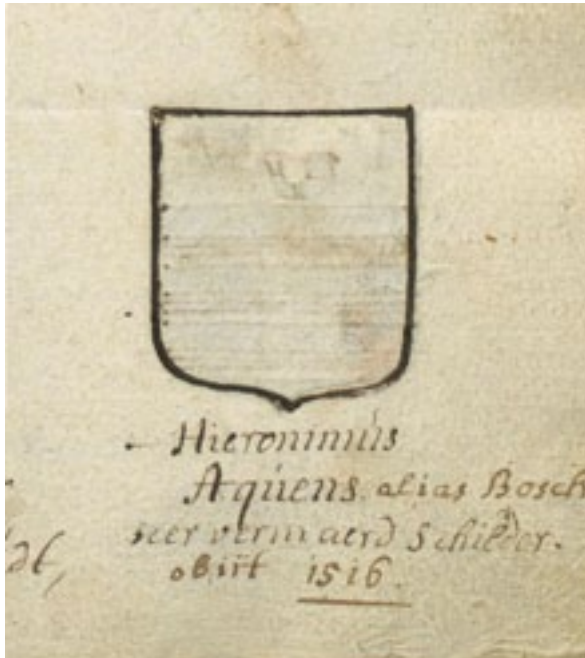 Hieronimus
Aquens. alias Bosch
seer vermaerd Schilder.
obijt 1516.